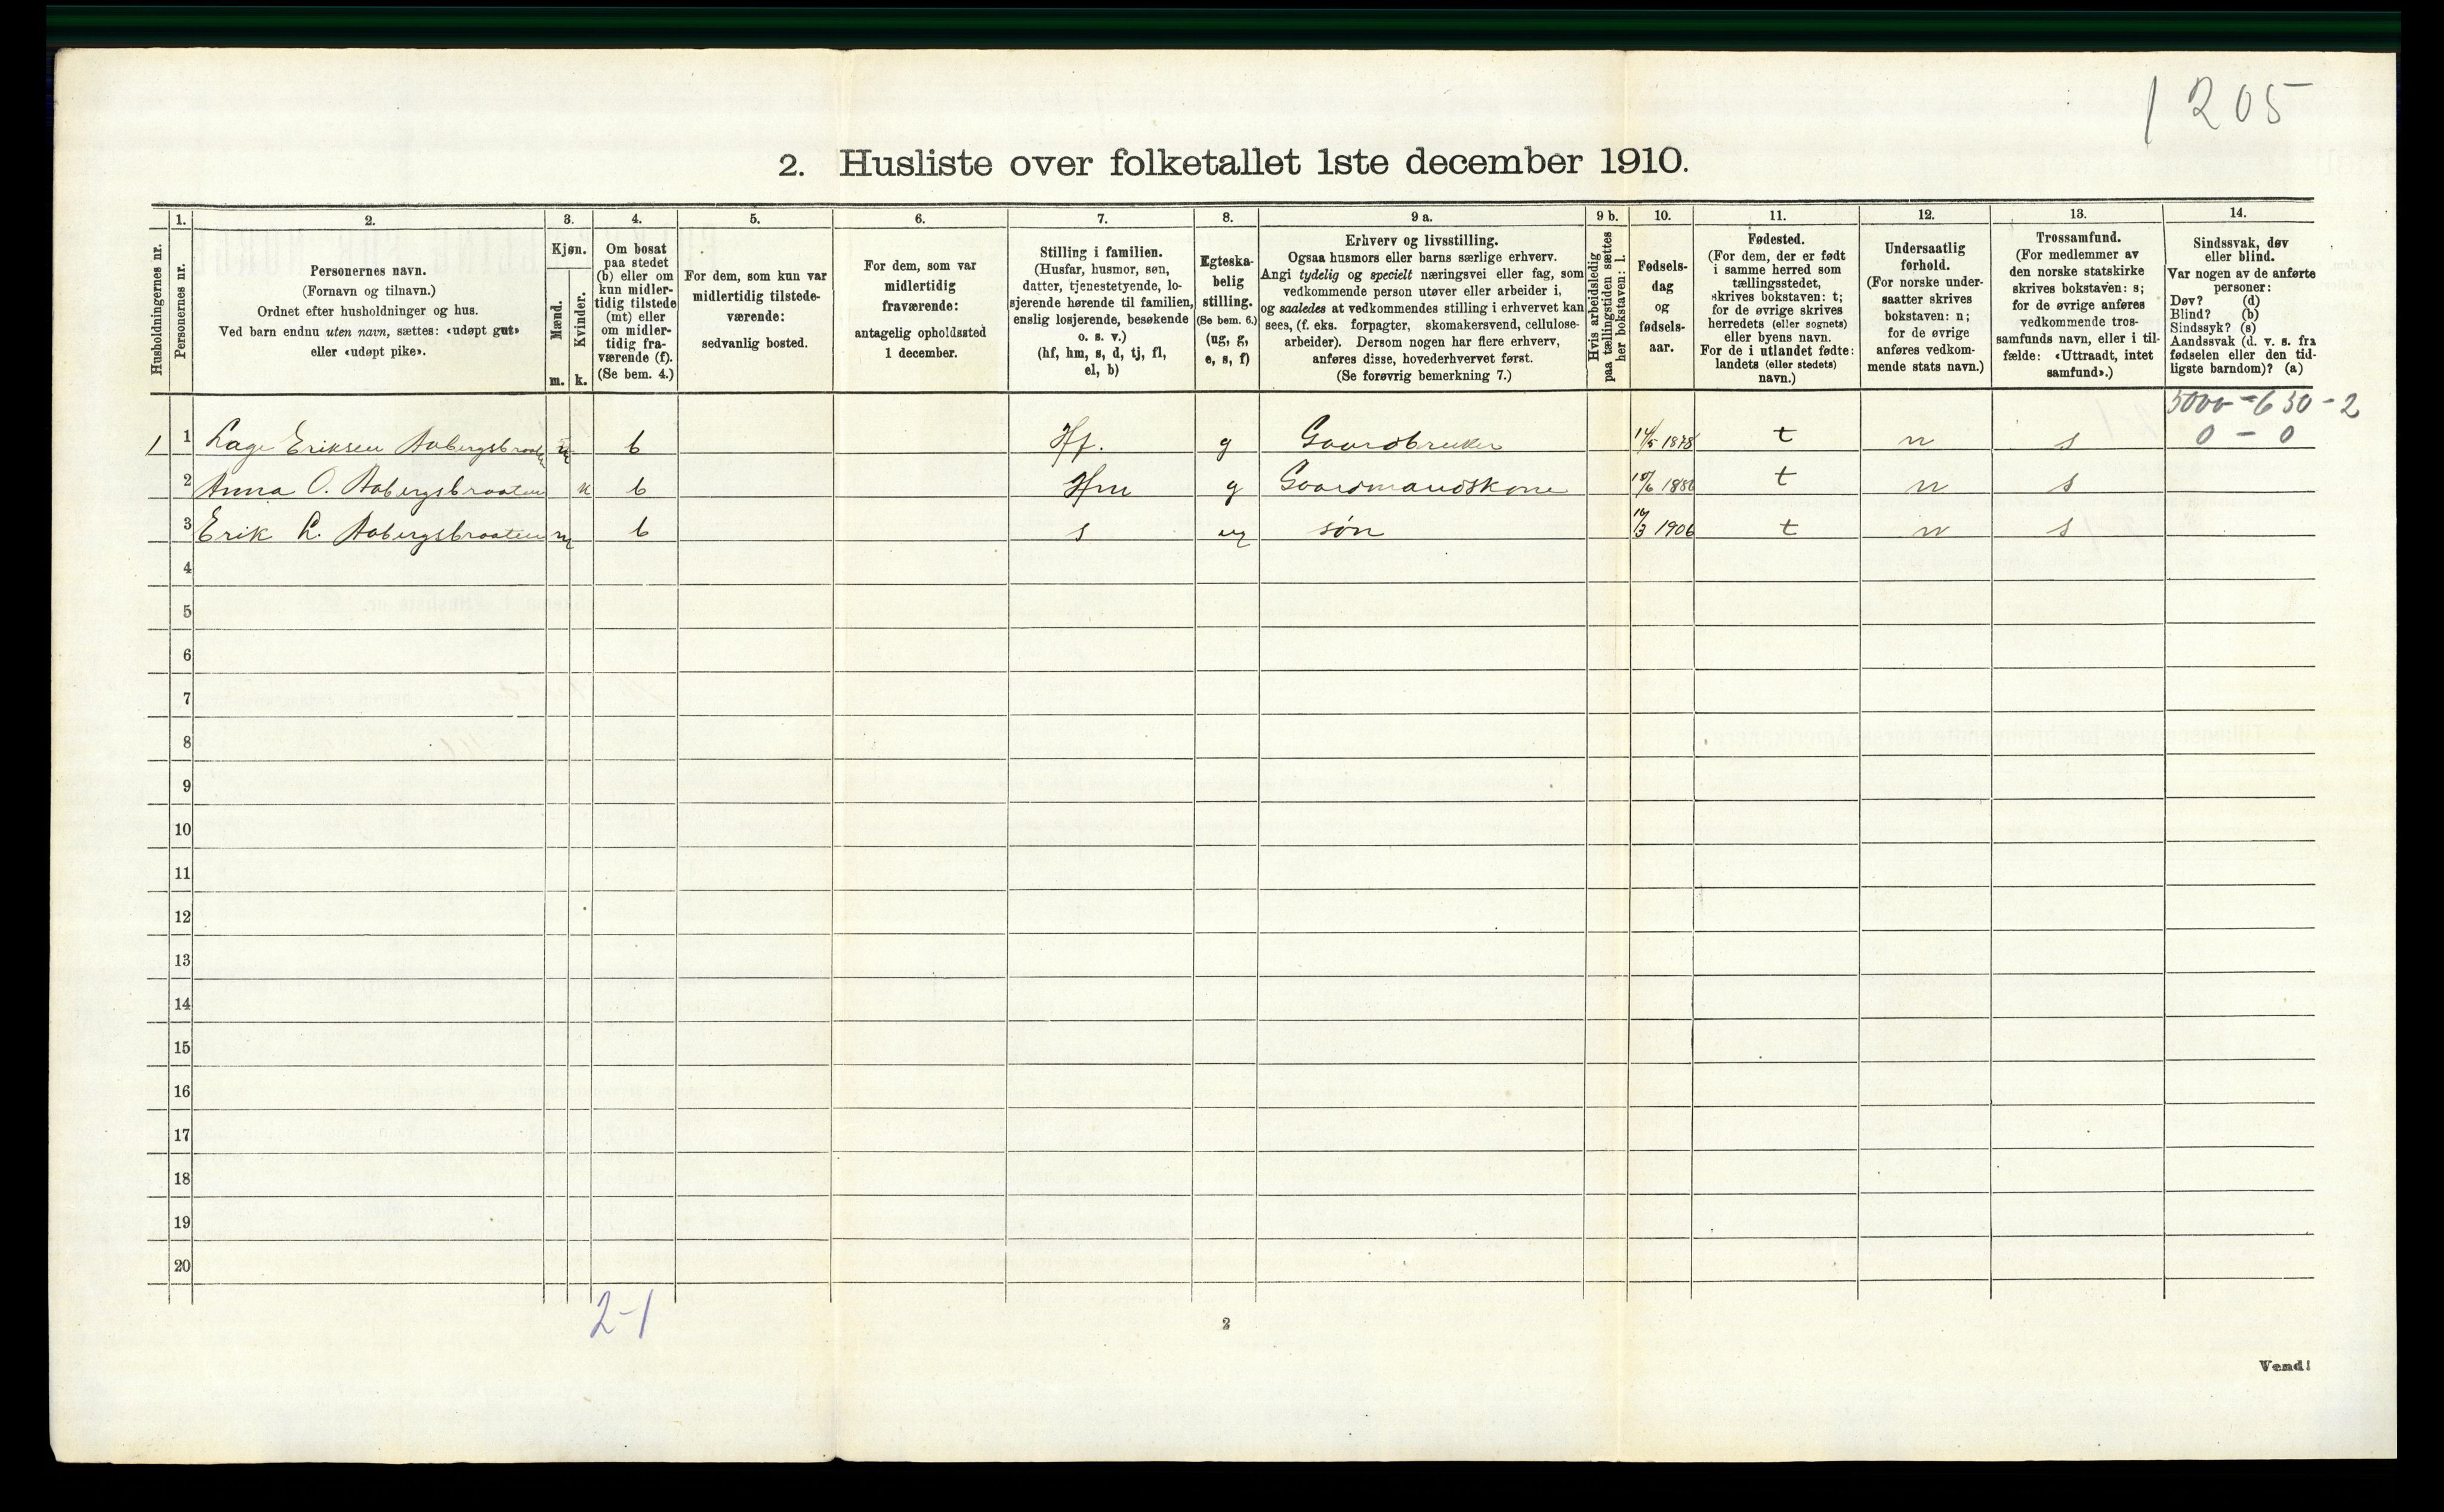 1205
2. Husliste over folketallet 1ste december 1910.
Husholdningernes nr.
1.
Personernes nr.
2.
Personernes navn.
(Fornavn og tilnavn.)
Ordnet efter husholdninger og hus.
Ved barn endnu uten navn, sættes: «udøpt gut»
eller «udøpt pike».
3.
Kjøn.
Mænd.
m.
Kvinder.
k.
4.
Om bosat
paa stedet
(b) eller om
kun midler-
tidig tilstede
(mt) eller
om midler-
tidig fra-
værende (f).
(Se bem. 4.)
5.
For dem, som kun var
midlertidig tilstede-
værende:
sedvanlig bosted.
6.
For dem, som var
midlertidig
fraværende:
antagelig opholdssted
1 december.
7.
Stilling i familien.
(Husfar, husmor, søn,
datter, tjenestetyende, lo-
sjerende hørende til familien,
enslig losjerende, besøkende
o. s. v.)
(hf, hm, s, d, tj, fl,
el, b)
8.
Egteska-
belig
stilling.
(Se bem. 6.)
(ug, g,
e, s, f)
9 a.
Erhverv og livsstilling.
Ogsaa husmors eller barns særlige erhverv.
Angi tydelig og specielt næringsvei eller fag, som
vedkommende person utøver eller arbeider i,
og saaledes at vedkommendes stilling i erhvervet kan
sees, (f. eks. forpagter, skomakersvend, cellulose-
arbeider). Dersom nogen har flere erhverv,
anføres disse, hovederhvervet først.
(Se forøvrig bemerkning 7.)
9 b.
Hvis arbeidsledig
paa tællingstiden sættes
her bokstaven: l.
10.
Fødsels-
dag
og
fødsels-
aar.
11.
Fødested.
(For dem, der er født
i samme herred som
tællingsstedet,
skrives bokstaven: t;
for de øvrige skrives
herredets (eller sognets)
eller byens navn.
For de i utlandet fødte:
landets (eller stedets)
navn.)
12.
Undersaatlig
forhold.
(For norske under-
saatter skrives
bokstaven: n;
for de øvrige
anføres vedkom-
mende stats navn.)
13.
Trossamfund.
(For medlemmer av
den norske statskirke
skrives bokstaven: s;
for de øvrige anføres
vedkommende tros-
samfunds navn, eller i til-
fælde: «Uttraadt, intet
samfund».)
14.
Sindssvak, døv
eller blind.
Var nogen av de anførte
personer:
Døv? (d)
Blind? (b)
Sindssyk? (s)
Aandssvak (d. v. s. fra
fødselen eller den tid-
ligste barndom)? (a)
5000 - 630 - 2
0 - 0
1 1 Lage Eriksen Aabergsbraaten m b Hf. g Gaardbruker 14/5 1878 t n s
2 Anna O. Aabergsbraaten k b Hm g Gaardmandskone t n s
3 Erik L. Aabergsbraaten m b s ug søn 1906 t n s
4
5
6
7
8
9
10
11
12
13
14
15
16
17
18
19
20
2-1
2
Vend!